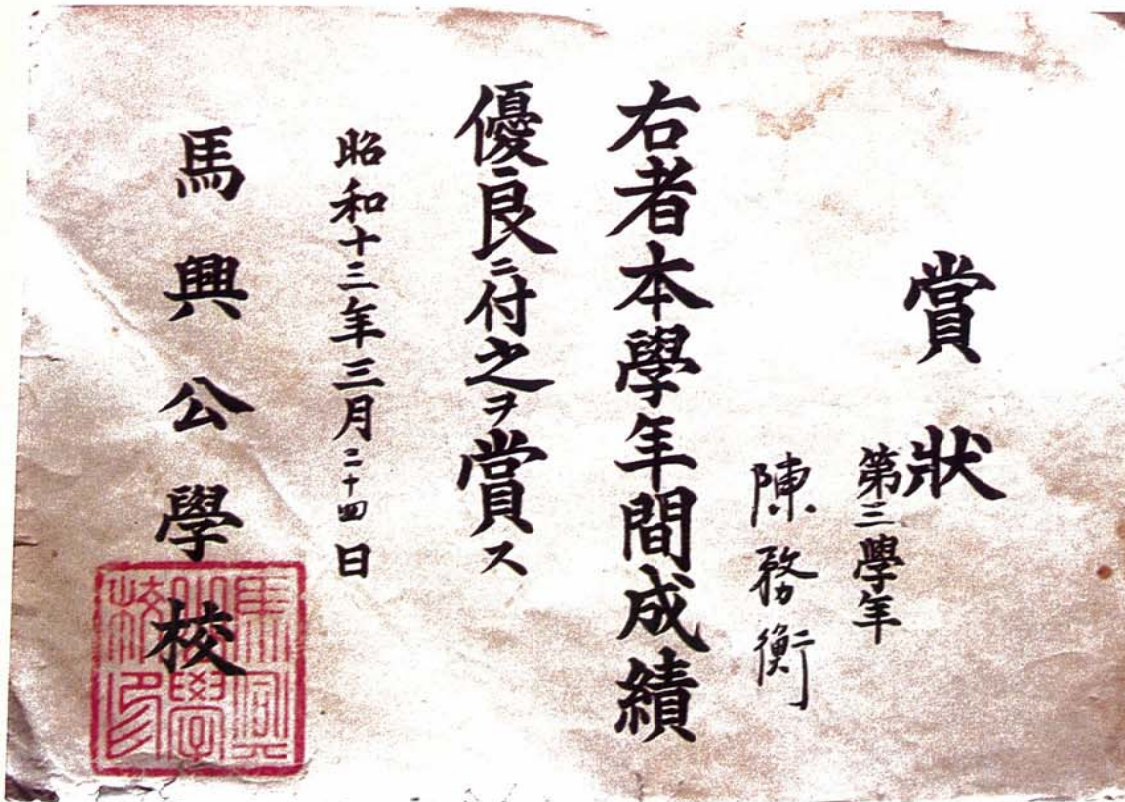 賞狀
第三學年
陳務衡
右者本學年間成績
優良ニ付之ヲ賞ス
昭和十三年三月二十四日
馬興公學校
馬興公學校印